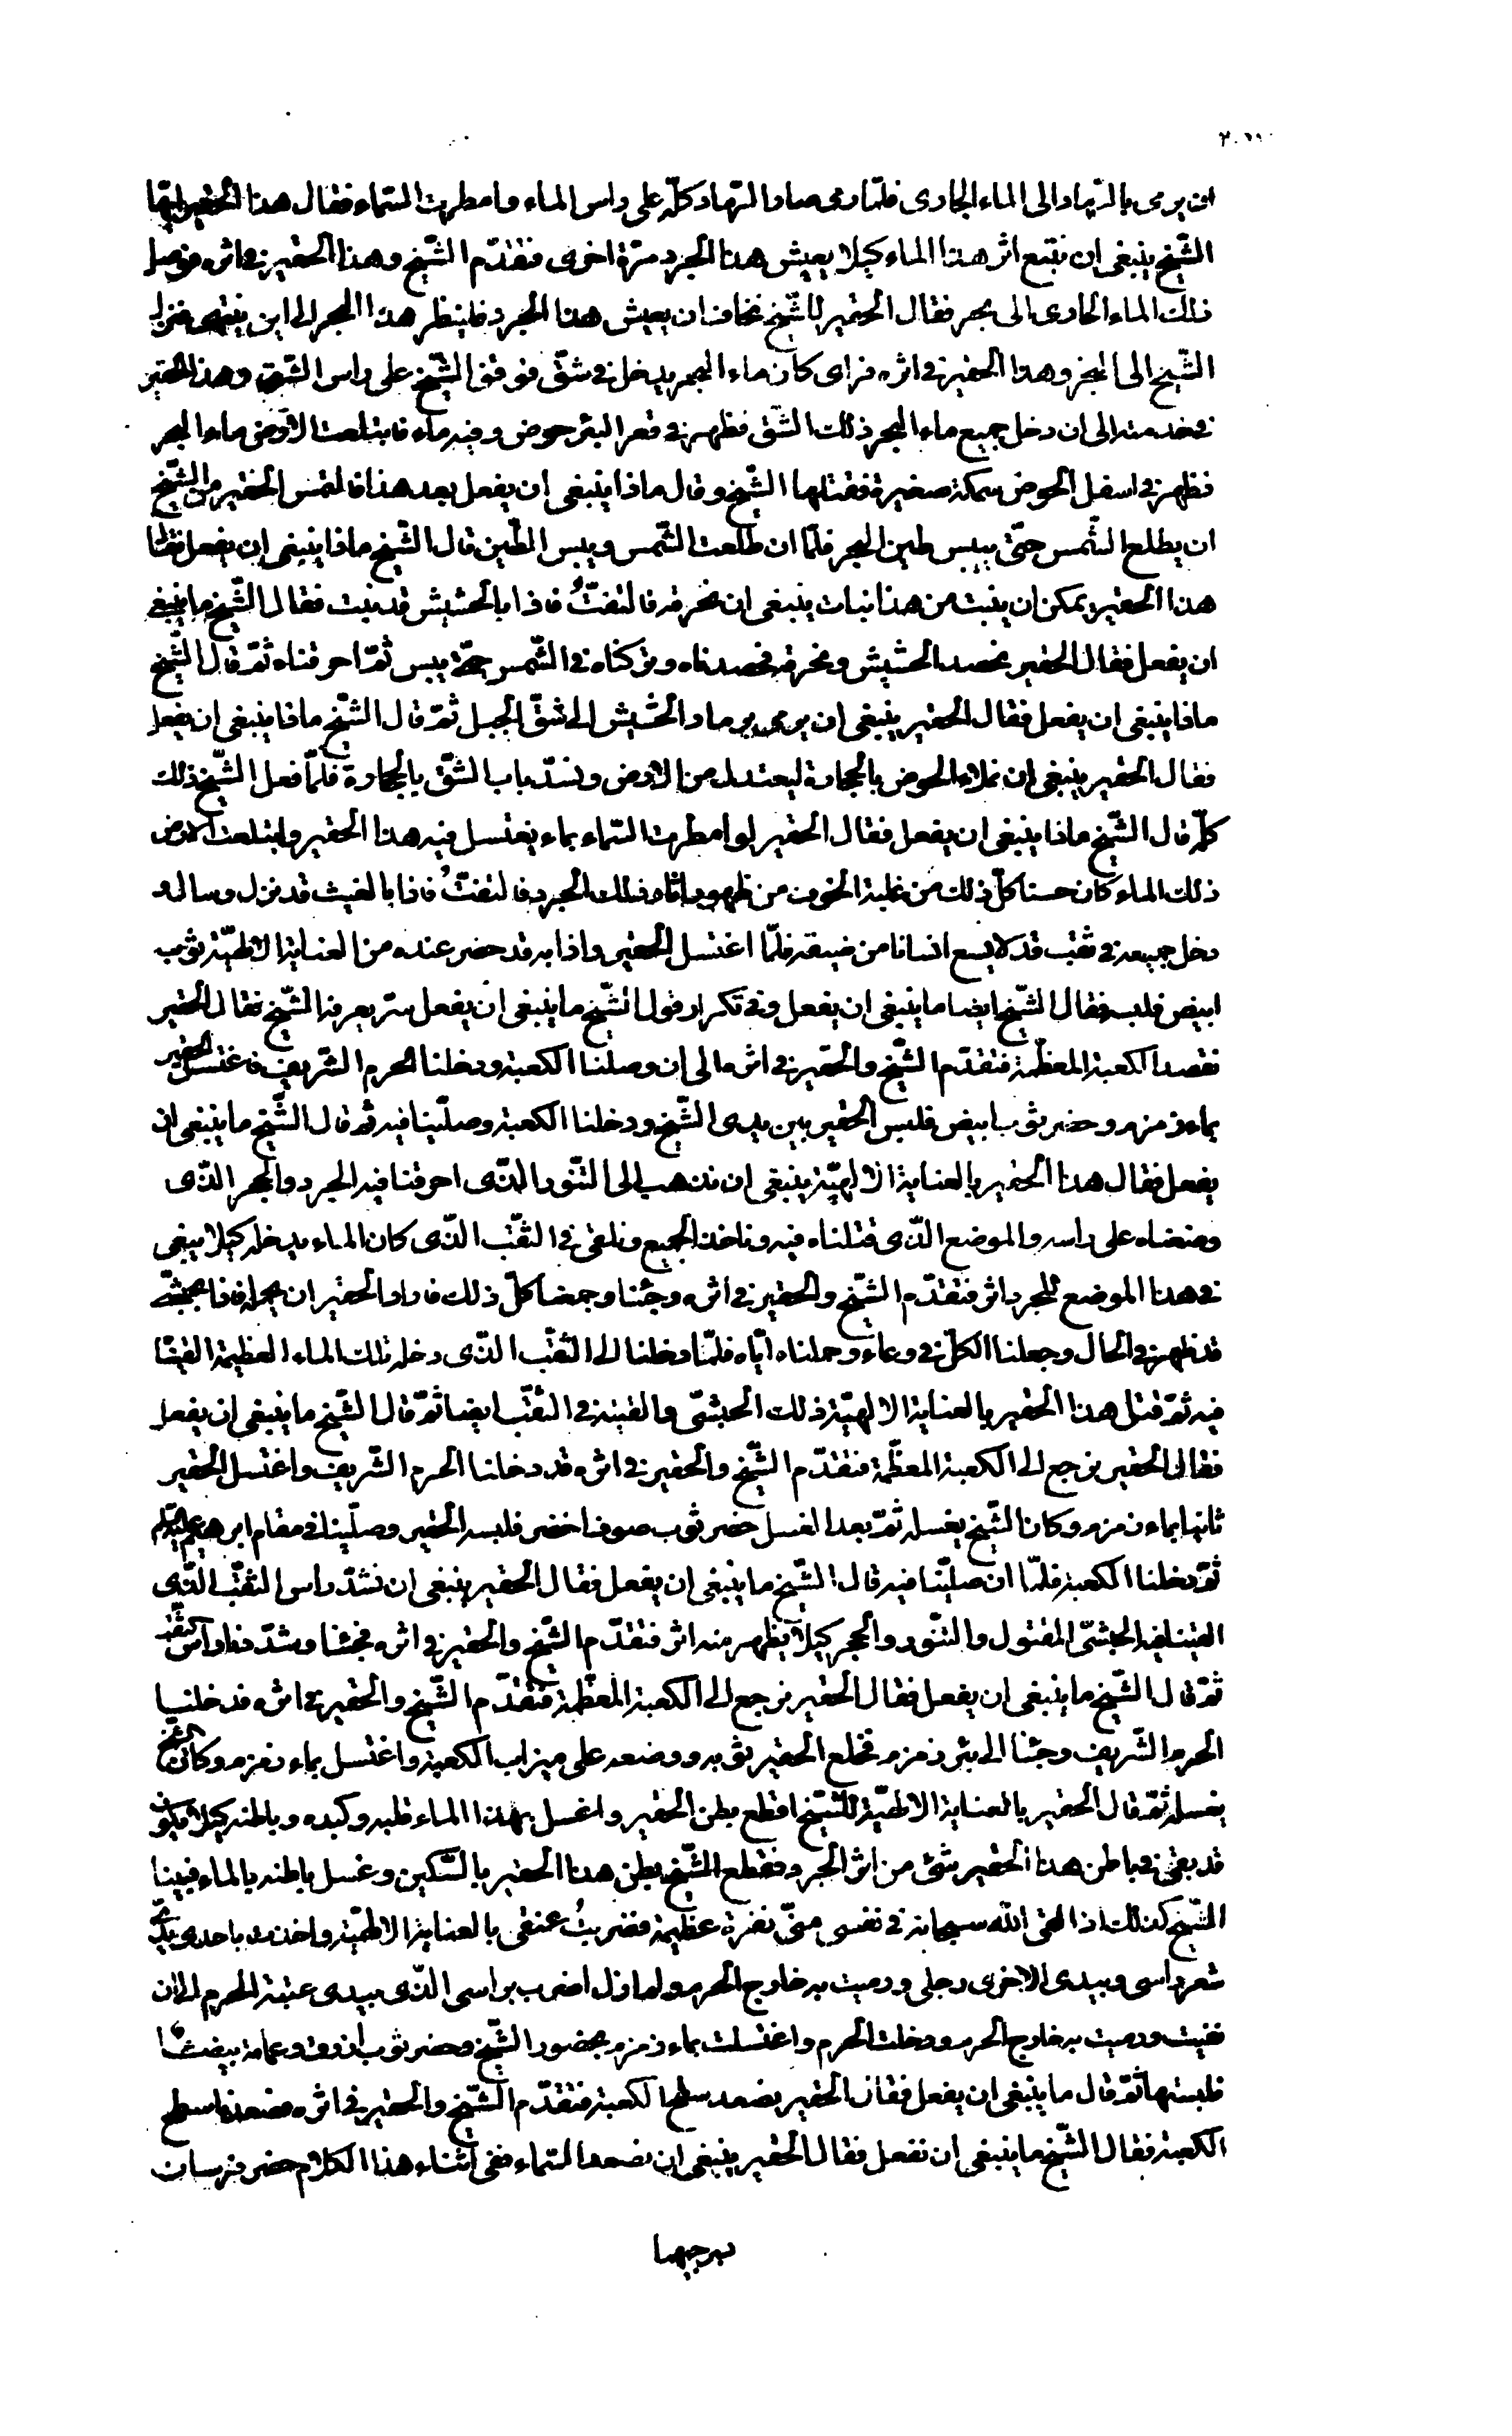 ان يرمى بالرّماد الى الماء الجارى فلمّا رمى صار الرّماد كلّه على راس الماء وامطرت السّماء فقال هذا الحقير ايّها
الشّيخ ينبغى ان نتبع اثر هذا الماء كيلا يعيش هذا الجرد مرّة اخرى فتقدّم الشّيخ وهذا الحقير فى اثره فوصل
ذلك الماء الجارى الى بحر فقال الحقير يا شّيخ نخاف ان يعيش هذا الجرد فلينظر هذا البحر الى اين ينتهى فنزل
الشّيخ الى البحر وهذا الحقير فى اثره فراى كان ماء البحر يدخل فى شقّ فوقف الشّيخ على راس الشّق وهذا الحقير
فى خدمته الى ان دخل جميع ماء البحر ذلك الشّق فظهر فى قعر البئر حوض وفيه ماء فابتلعت الارض ماء البحر
فظهر فى اسفل الحوض سمكة صغيرة فقتلها الشّيخ وقال ماذا ينبغى ان يفعل بعد هذا فالتمس الحقير من الشّيخ
ان يطلع الشّمس حتّى ييبس طين البحر فلمّا ان طلعت الشّمس ويبس الطّين قال الشّيخ ماذا ينبغى ان يفعل فقال
هذا الحقير يمكن ان ينبت من هذا نبات ينبغى ان نحرقه فالتفتُّ فاذا بالحشيش قد نبت فقال الشّيخ ما ينبغى
ان يفعل فقال الحقير نحصد الحشيش ونحرقه فحصدناه وتركناه فى الشّمس حتّى يبس ثمّ احرقناه ثمّ قال الشّيخ
ماذا ينبغى ان يفعل فقال الحقير ينبغى ان يرمى برماد الحشيش الى شقّ الجبل ثمّ قال الشّيخ ماذا ينبغى ان يفعل
فقال الحقير ينبغى ان نملاء الحوض بالحجارة ليعتدل من الارض ونسدّ باب الشقّ بالحجارة فلمّا فعل الشّيخ ذلك
كلّه قال الشّيخ ماذا ينبغى ان يفعل فقال الحقير لو امطرت السّماء بماء يغتسل فيه هذا الحقير وابتلعت الارض
ذلك الماء كان حسنا كلّ ذلك من غلبة الخوف من ظهور ذلك الجرد فالتفتُّ فاذا بالغيث قد نزل وسال و
دخل جميعه فى ثقب قد لا يسع انسانا من ضيقه فلمّا اغتسل الحقير واذا به قد حضر عنده من العناية الالهيّة ثوب
ابيض فلبسه فقال الشّيخ ايضا ما ينبغى ان يفعل وفى تكرار قول الشّيخ ما ينبغى ان يفعل سرّ يعرفه الشّيخ فقال الحقير
نقصد الكعبة المعظّمة فتقدّم الشّيخ والحقير فى اثره الى ان وصلنا الكعبة ودخلنا الحرم الشّريف فاغتسل الحقير
بماء زمزم وحضر ثوب ابيض فلبس الحقير بين يدى الشّيخ ودخلنا الكعبة وصلّينا فيه ثم قال الشّيخ ما ينبغى ان
يفعل فقال هذا الحقير بالعناية الالهيّة ينبغى ان نذهب الى التّنور الّذى احرقنا فيه الجرد والحجر الّذى
وضعناه على راسه والموضع الّذى قتلناه فيه وناخذ الجميع ونلقى فى الثّقب الّذى كان الماء يدخله كيلا يبقى
فى هذا الموضع للجرد اثر فتقدّم الشّيخ والحقير فى اثره وجئنا وجمعنا كلّ ذلك فاراد الحقير ان يحمله فاذا بحبشّى
قد ظهر فى الحال وجعلنا الكلّ فى وعاء وحملناه ايّاه فلمّا دخلنا الى الثّقب الّذى دخله تلك الماء العظيمة القينا
فيه ثمّ قتل هذا الحقير بالعناية الالهيّة ذلك الحبشىّ والقيته فى الثّقب ايضا ثمّ قال الشّيخ ما ينبغى ان يفعل
فقال الحقير نرجع الى الكعبة المعظّمة فتقدّم الشّيخ والحقير فى اثره قد دخلنا الحرم الشّريف واغتسل الحقير
ثانيا بماء زمزم وكان الشّيخ يغسله ثمّ بعد الغسل حضر ثوب صوف اخضر فلبسه الحقير وصلّينا فى مقام ابرهيم عليه السّلم
ثمّ دخلنا الكعبة فلمّا ان صلّينا فيه قال الشّيخ ما ينبغى ان يفعل فقال الحقير ينبغى ان نسدّ راس الثّقب الّذى
القينا فيه الحبشىّ المقتول والتّنور والحجر كيلا يظهر منه اثر فتقدّم الشّيخ والحقير فى اثره فجئنا وسدّدنا راس الثّقب
ثمّ قال الشّيخ ما ينبغى ان يفعل فقال الحقير نرجع الى الكعبة المعظّمة فتقدّم الشّيخ والحقير فى اثره فدخلنا
الحرم الشّريف وجئنا الى بئر زمزم فخلع الحقير ثوبه ووضعه على ميزاب الكعبة واغتسل بماء زمزم وكان الشّيخ
يغسله ثمّ قال الحقير بالعناية الالهيّة للشّيخ اقطع بطن الحقير واغسل بهذا الماء قلبه وكبده وباطنه كيلا يكون
قد بقى فى باطن هذا الحقير شئ من اثر الجرد فقطع الشّيخ بطن هذا الحقير بالسّكين وغسل باطنه بالماء فبينا
الشّيخ كذلك اذ القى الله سبحانه فى نفسى منّى نفرة عظيمة فضربتُ عنقى بالعناية الالهيّة واخذت باحدى يدىّ
شعر راسى وبيدى الاخرى رجلى ورميت به خارج الحرم ولم ازل اضرب براسى الّذى بيدى عتبة الحرم الى ان
فنيت ورميت به خارج الحرم ودخلت الحرم واغتسلت بماء زمزم بحضور الشّيخ وحضر ثوب ازرق وعمامة بيضاء
فلبستها ثمّ قال ما ينبغى ان يفعل فقال الحقير نصعد سطح الكعبة فتقدّم الشّيخ والحقير فى اثره فصعدنا سطح
الكعبة فقال الشّيخ ما ينبغى ان نفعل فقال الحقير ينبغى ان نصعد السّماء ففى اثناء هذا الكلام حضر فرسان